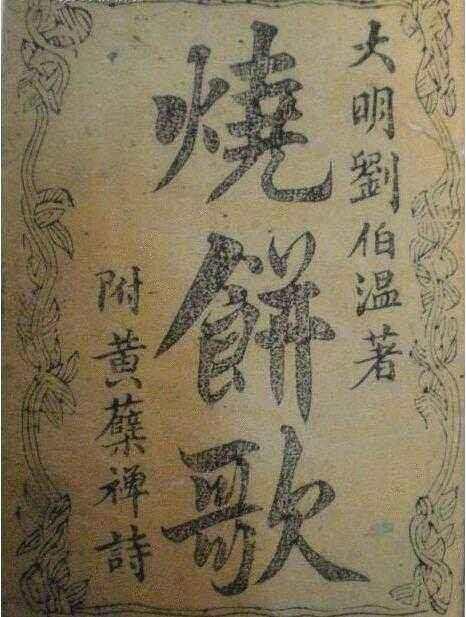 大明劉伯溫著
燒餅歌
附黃蘗禪詩